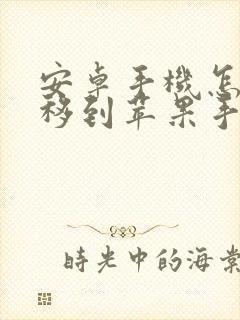 安卓手機怎
移到苹果手
時光中的海棠